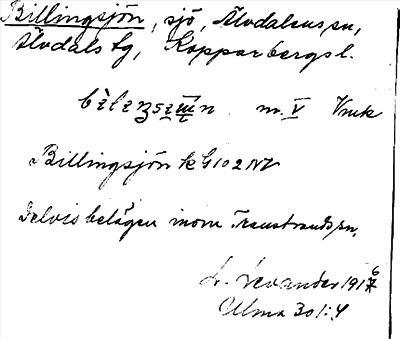 Billingsjön, sjö, Älvdalens sn,
Älvdals tg, Kopparbergs l.
m. V
Billingsjön k G102 NV
Delvis belägen inom Transtrands sn.
L. Levander 1916
Ulma 301:4